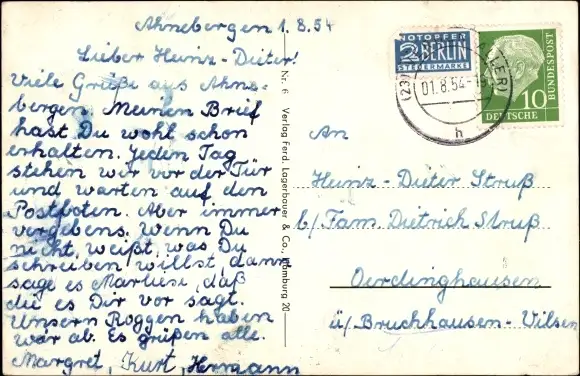 Ahnebergen 1.8.54
Lieber Heinz-Dieter!
Viele Grüße aus Ahne-
bergen. Meinen Brief
hast Du wohl schon
erhalten. Jeden Tag
stehen wir vor der Tür
und warten auf den
Postboten. Aber immer
vergebens. Wenn Du
nicht, weißt, was Du
schreiben willst, dann
sage es Marliese, daß
die es Dir vor sagt.
Unsern Roggen haben
wir ab. Es grüßen alle.
Margret, Kurt, Hermann
Nr. 6 Verlag Ferd. Lagerbauer & Co., Hamburg 20
NOTOPFER
2 BERLIN
STEUERMARKE
(23)
ALLER)
01.8.54
h
10
DEUTSCHE
BUNDESPOST
An
Heinz-Dieter Struß
b/ Fam. Dietrich Struß
Oerdinghausen
ü/ Bruchhausen-Vilsen